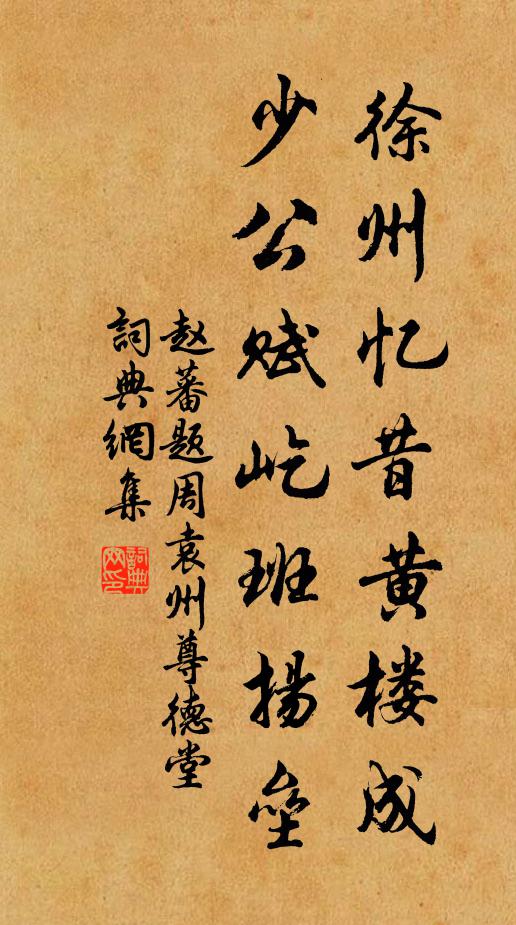 徐州忆昔黄楼成
少公赋屹班扬垒
赵蕃题周袁州尊德堂
詞典網集
詞典网印